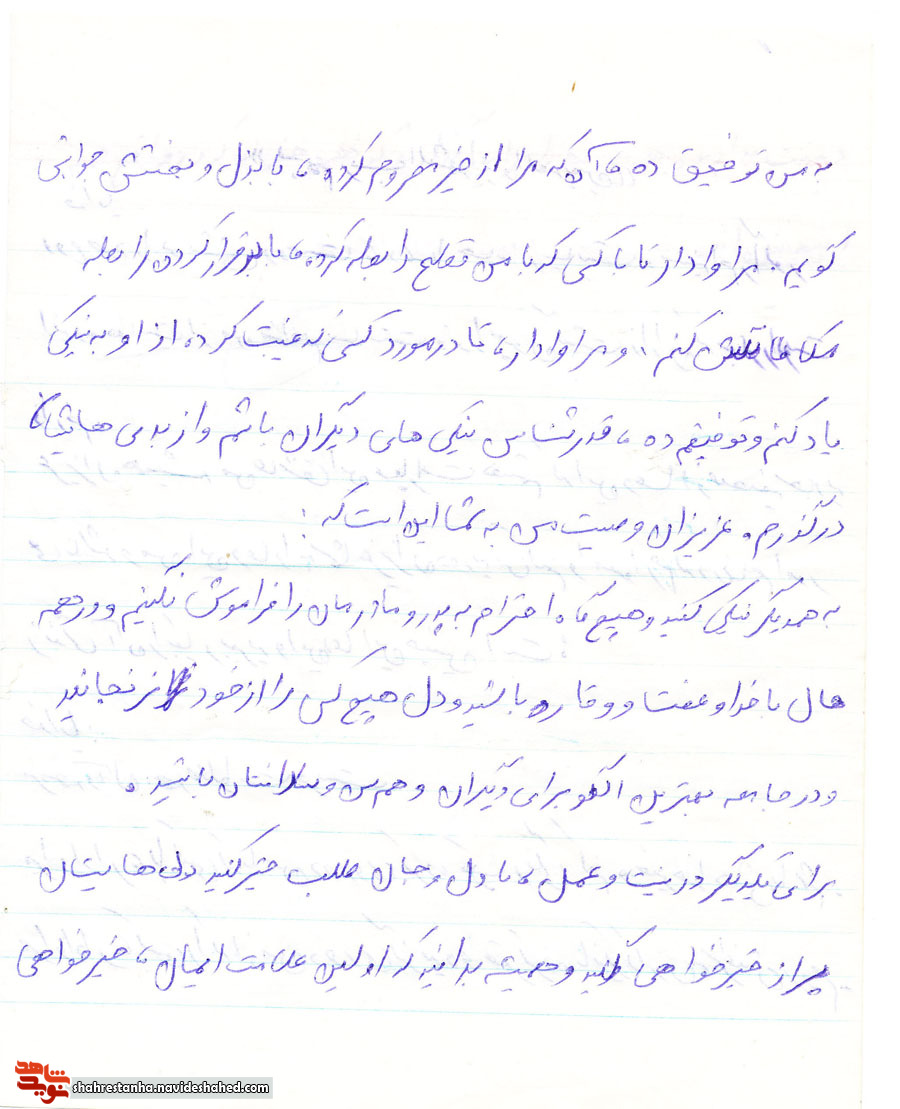 به من توفیق ده، آن که مرا از خیر محروم کرده، با بذل و بخشش جوابی
گویم. مرا وادار تا با کسی که با من قطع رابطه کرده، با برقرار کردن رابطه
کنم. و مرا وادار، تا در مورد کسی که غیبت کرده از او به نیکی
یاد کنم و توفیقم ده، قدرشناس نیکی های دیگران باشم و از بدی هایشان
درگذرم. عزیزان وصیت من به شما این است که:
به همدیگر نیکی کنید و هیچ گاه احترام به پدر و مادرمان را فراموش نکنیم و در همه
حال با خدا و عفت و وقار باشید و دل هیچ کس را از خود نرنجانید
و در جامعه بهترین الگو برای دیگران و هم سن و سالانتان باشید.
برای یکدیگر در نیت و عمل، با دل و جان طلب خیر کنید دل هایتان
پر از خیرخواهی کنید و همیشه بدانید که اولین علامت ایمان، خیرخواهی
شاهد
نوید
shahrestanha.navideshahed.com